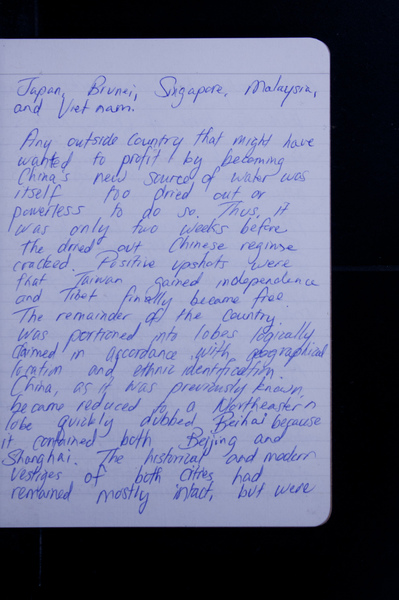 Japan, Brunei, Singapore, Malaysia,
and Vietnam.
Any outside country that might have
wanted to profit by becoming
China's new source of water was
itself too dried out or
powerless to do so. Thus, it
was only two weeks before
the dried out Chinese regime
cracked. Positive upshots were
that Taiwan gained independence
and Tibet finally became free.
The remainder of the country
was portioned into lobes logically
claimed in accordance with geographical
location and ethnic identification.
China, as it was previously known,
became reduced to a Northeastern
lobe quickly dubbed Beihai because
it contained both Beijing and
Shanghai. The historical and modern
vestiges of both cities had
remained mostly intact, but were